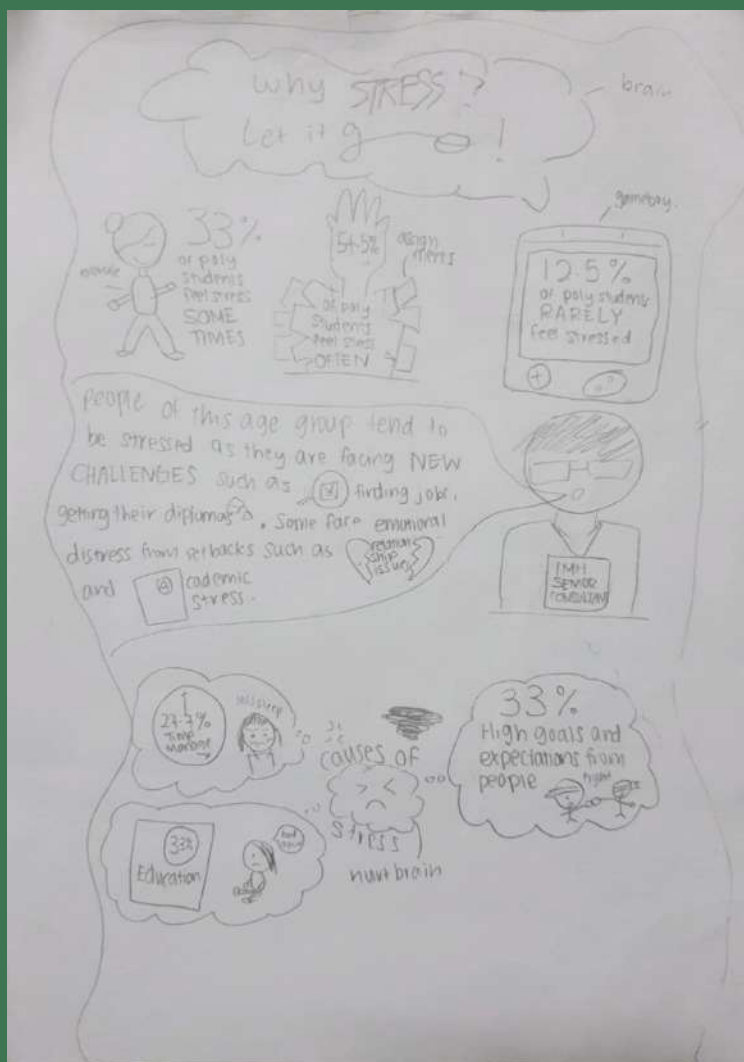 Why STRESS?
Let it go!
brain
33%
of poly
students
feel stress
SOME
TIMES
54.5%
of poly
students
feel stress
OFTEN
assign
ments
gameboy.
12.5%
of poly students
RARELY
feel stressed
People of this age group tend to
be stressed as they are facing NEW
CHALLENGES such as finding jobs,
getting their diplomas. Some face emotional
distress from setbacks such as relation
ship
issues
and academic
stress.
IMH
SENIOR
CONSULTANT
Time
Manage
causes of
stress
hurt brain
33%
High goals and
expectations from
people
33%
Education